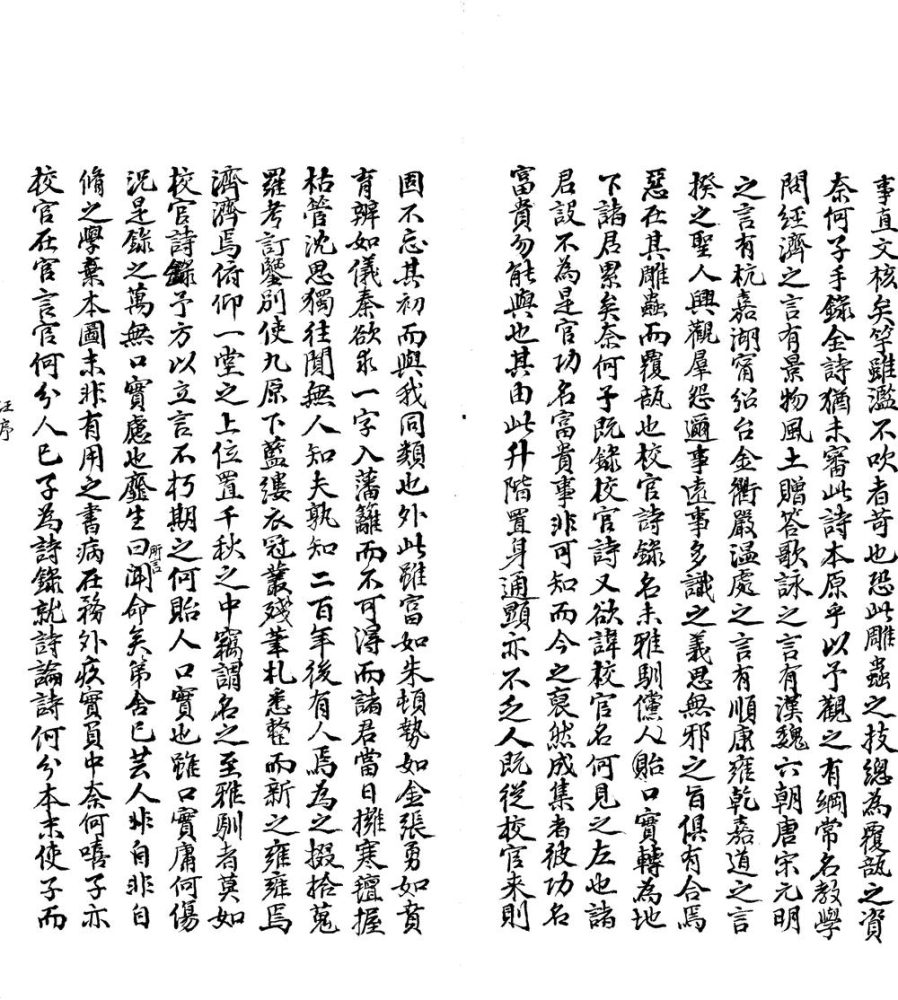 事直文核矣竽雖濫不吹者苛也恐此雕蟲之技總為覆瓿之資
奈何子手錄全詩猶未審此詩本原乎以予觀之有綱常名教學
問經濟之言有景物風土贈答歌詠之言有漢魏六朝唐宋元明
之言有杭嘉湖甯紹台金衢嚴溫處之言有順康雍乾嘉道之言
揆之聖人興觀羣怨邇事遠事多識之義思無邪之旨俱有合焉
惡在其雕蟲而覆瓿也校官詩錄名未雅馴儻人貽口實轉為地
下諸君累矣奈何予既錄校官詩又欲諱校官名何見之左也諸
君設不為是官功名富貴事非可知而今之裒然成集者彼功名
富貴勿能與也其由此升階置身通顯亦不乏人既從校官来則
固不忘其初而與我同類也外此雖富如朱頓勢如金張勇如賁
育辨如儀秦欲求一字入藩籬而不可得而諸君當日擁寒氊握
枯管沈思獨往闃無人知夫孰知二百年後有人焉為之掇拾蒐
羅考訂鑒別使九原下藍縷衣冠叢殘筆札悉整而新之雍雍焉
濟濟焉俯仰一堂之上位置千秋之中竊謂名之至雅馴者莫如
校官詩錄予方以立言不朽期之何貽人口實也雖口實庸何傷
況是錄之萬無口實慮也蘧生曰聞所言命矣第舍已芸人非自非自
脩之學棄本圖末非有用之書病在務外疚實員中奈何嘻子亦
校官在官言官何分人已子為詩錄就詩論詩何分本末使子而
汪序